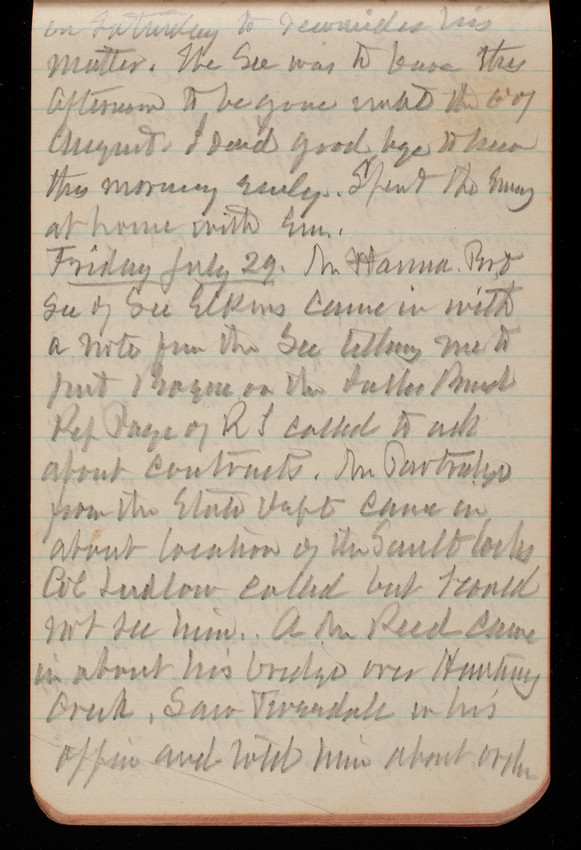 on Saturday to reconsider his
matter. The Sec was to leave this
afternoon to be gone until the 6 of
August. I said good bye to him
this morning early. Spent the Eveng
at home with Em.
Friday July 29. Mr Hanna. Prvt
Sec of Sec Elkins came in with
a note from the Sec telling me to
put on the Board
Rep Page of R I called to ask
about contracts. Mr Partridge
from the State Dept came in
about location of the Sault locks
Col Ludlow called but I could
not see him.. A Mr Reed came
in about his bridge over Hunting
Creek, Saw Tweedale in his
office and told him about order